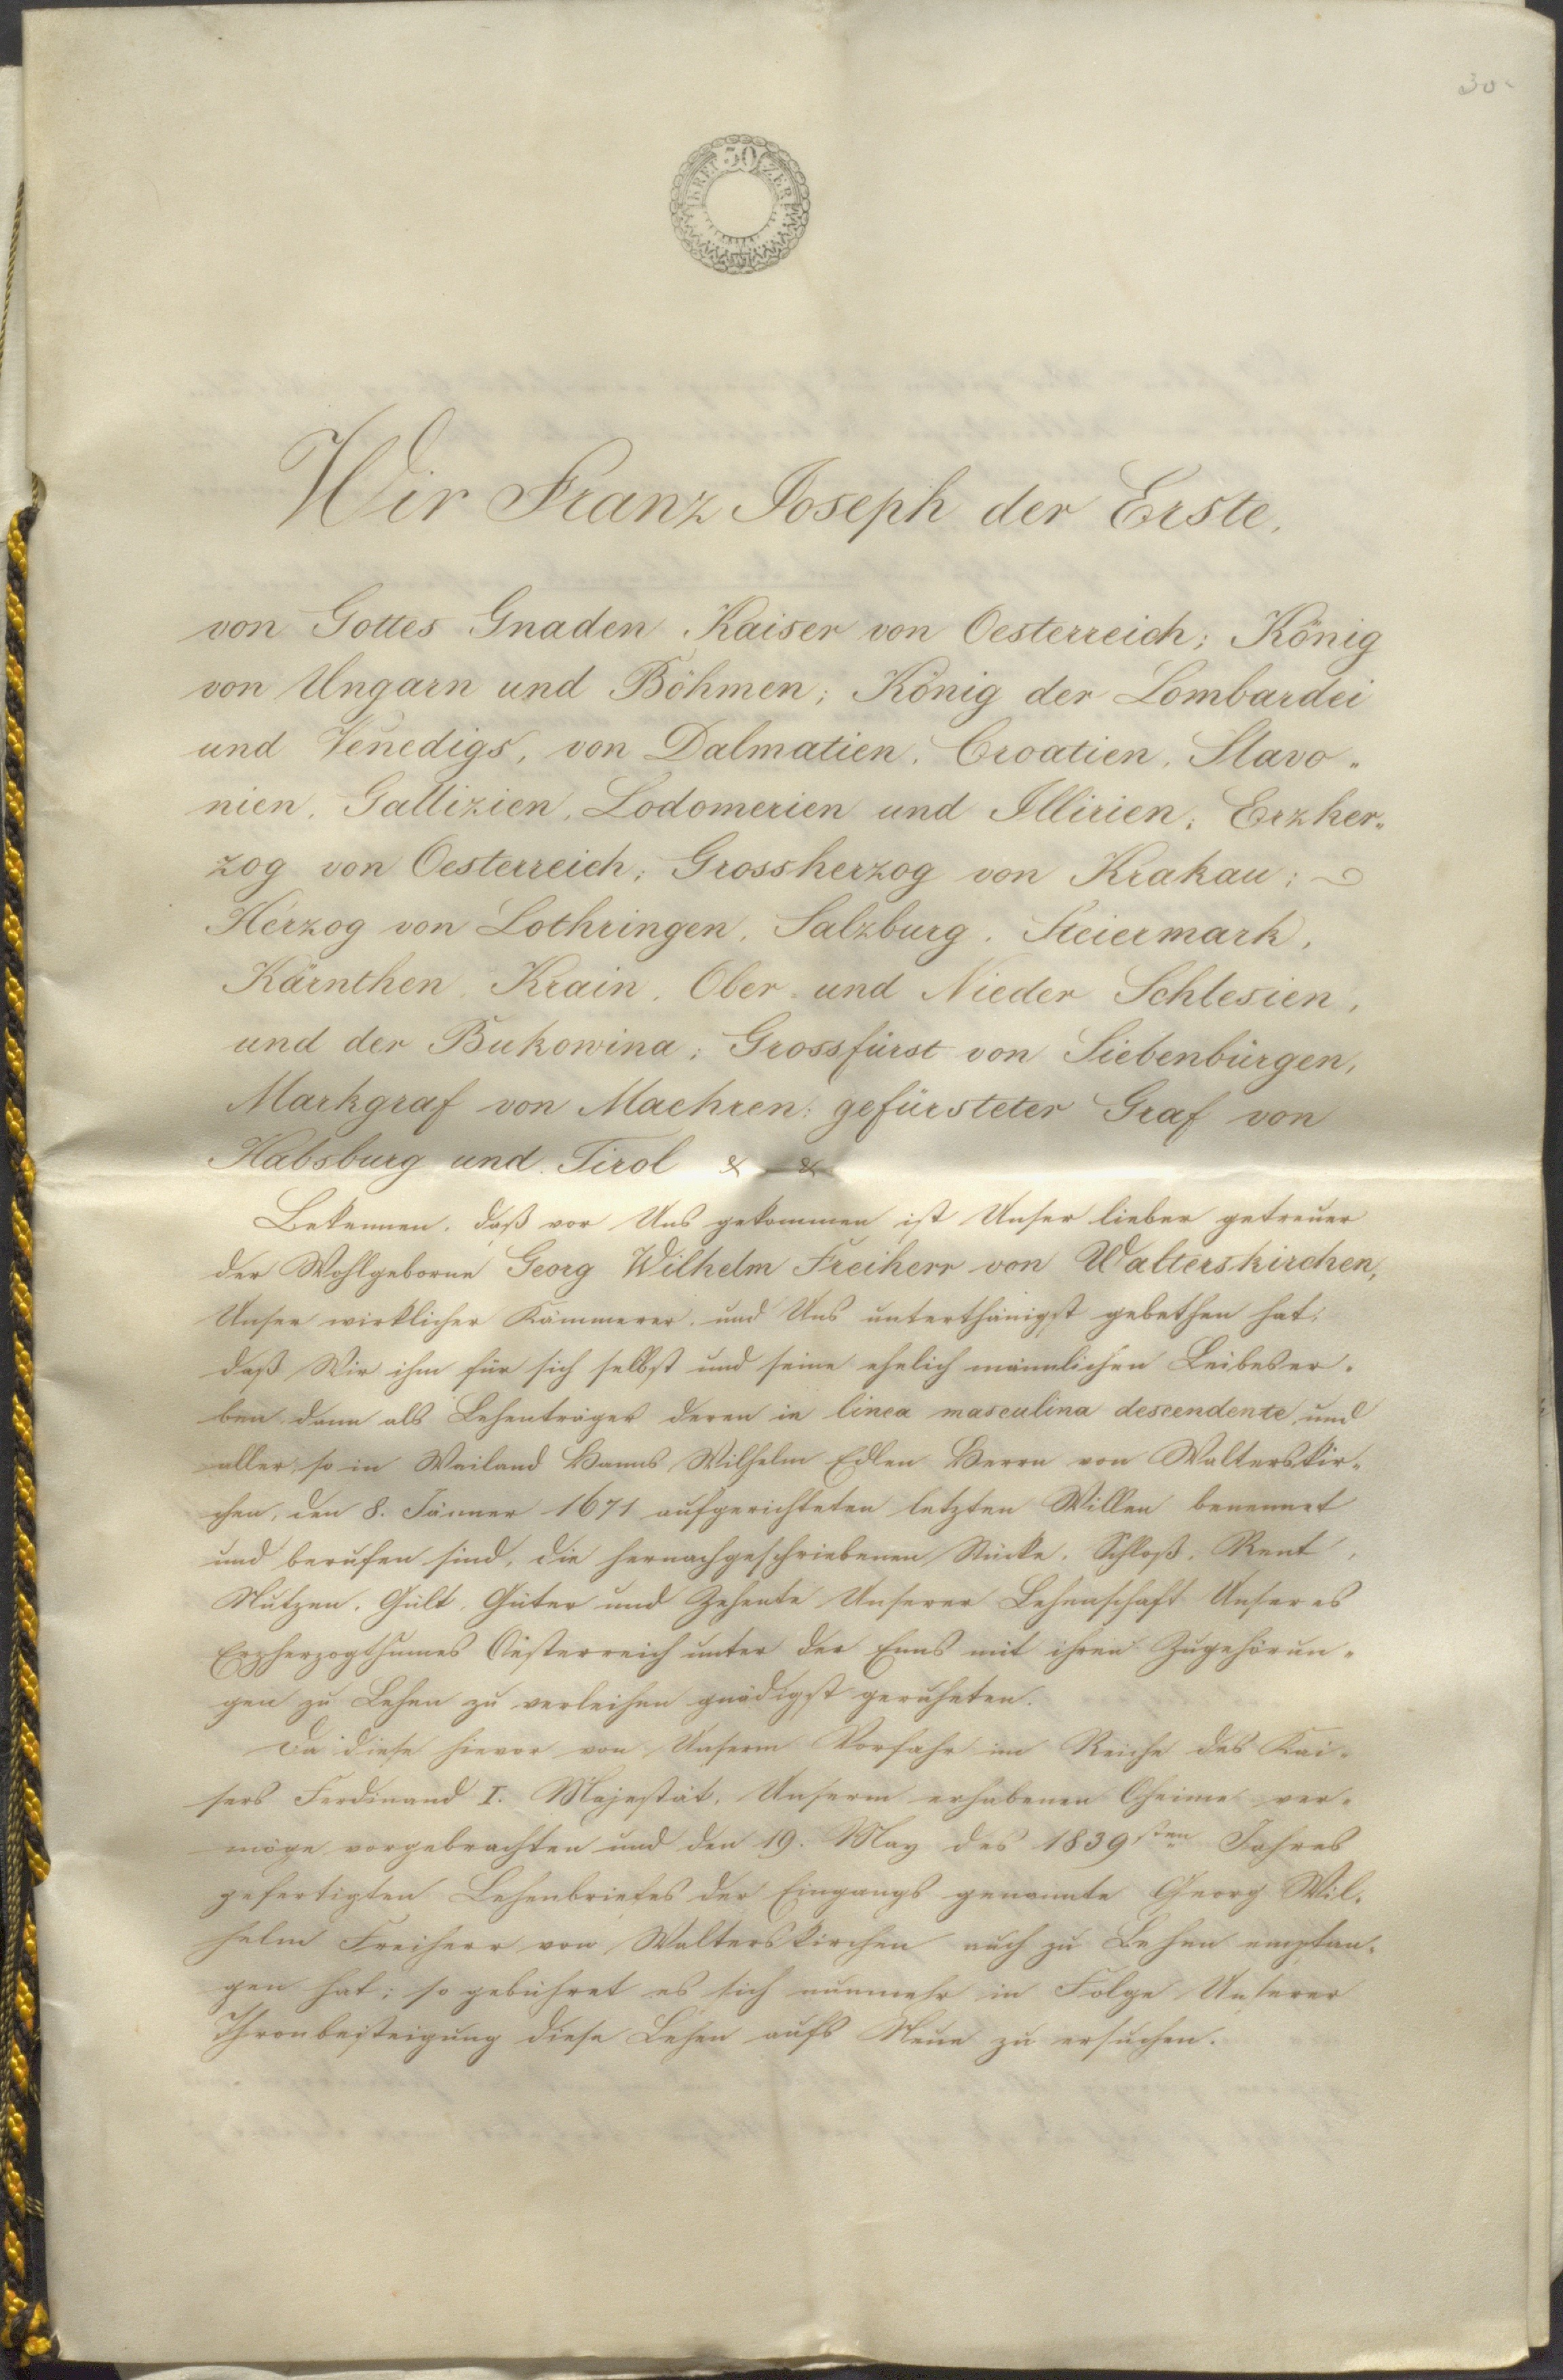 30
30
Wir Franz Joseph der Erste,
von Gottes Gnaden Kaiser von Oesterreich; König
von Ungarn und Böhmen; König der Lombardei
und Venedigs, von Dalmatien, Croatien, Slavo„
nien, Gallizien, Lodomerien und Illirien; Erzher„
zog von Oesterreich; Grossherzog von Krakau;
Herzog von Lothringen, Salzburg, Steiermark,
Kärnthen, Krain, Ober- und Nieder Schlesien,
und der Bukowina; Grossfürst von Siebenbürgen,
Markgraf von Maehren; gefürsteter Graf von
Habsburg und Tirol & &
Bekennen, daß vor Uns gekommen ist Unser lieber getreuer
der Wohlgeborne Georg Wilhelm Freiherr von Walterskirchen,
Unser wirklicher Kämmerer, und Uns unterthänigst gebethen hat,
daß Wir ihm für sich selbst und seine ehelich männlichen Leibeser„
ben dann als Lehenträger deren in linea masculina descendente, und
aller, so in Weiland Hanns Wilhelm Edlen Herrn von Walterskir„
chen, den 8. Jänner 1671 aufgerichteten letzten Willen benennet
und berufen sind, die hernachgeschriebenen Stücke, Schloß, Rent,
Nutzen, Gült, Güter und Zehente Unserer Lehenschaft Unseres
Erzherzogthumes Oesterreich unter der Enns mit ihren Zugehörun„
gen zu Lehen zu verleihen gnädigst geruheten.
Da diese hievor von Unserm Vorfahr im Reiche des Kai„
sers Ferdinand I. Majestät, Unserm erhabenen Oheime ver„
möge vorgebrachten und den 19. May des 1839sten Jahres
gefertigten Lehenbriefes der Eingangs genannte Georg Wil„
helm Freiherr von Walterskirchen auch zu Lehen empfan„
gen hat; so gebühret es sich nunmehr in Folge Unserer
Thronbesteigung diese Lehen aufs Neue zu ersuchen.